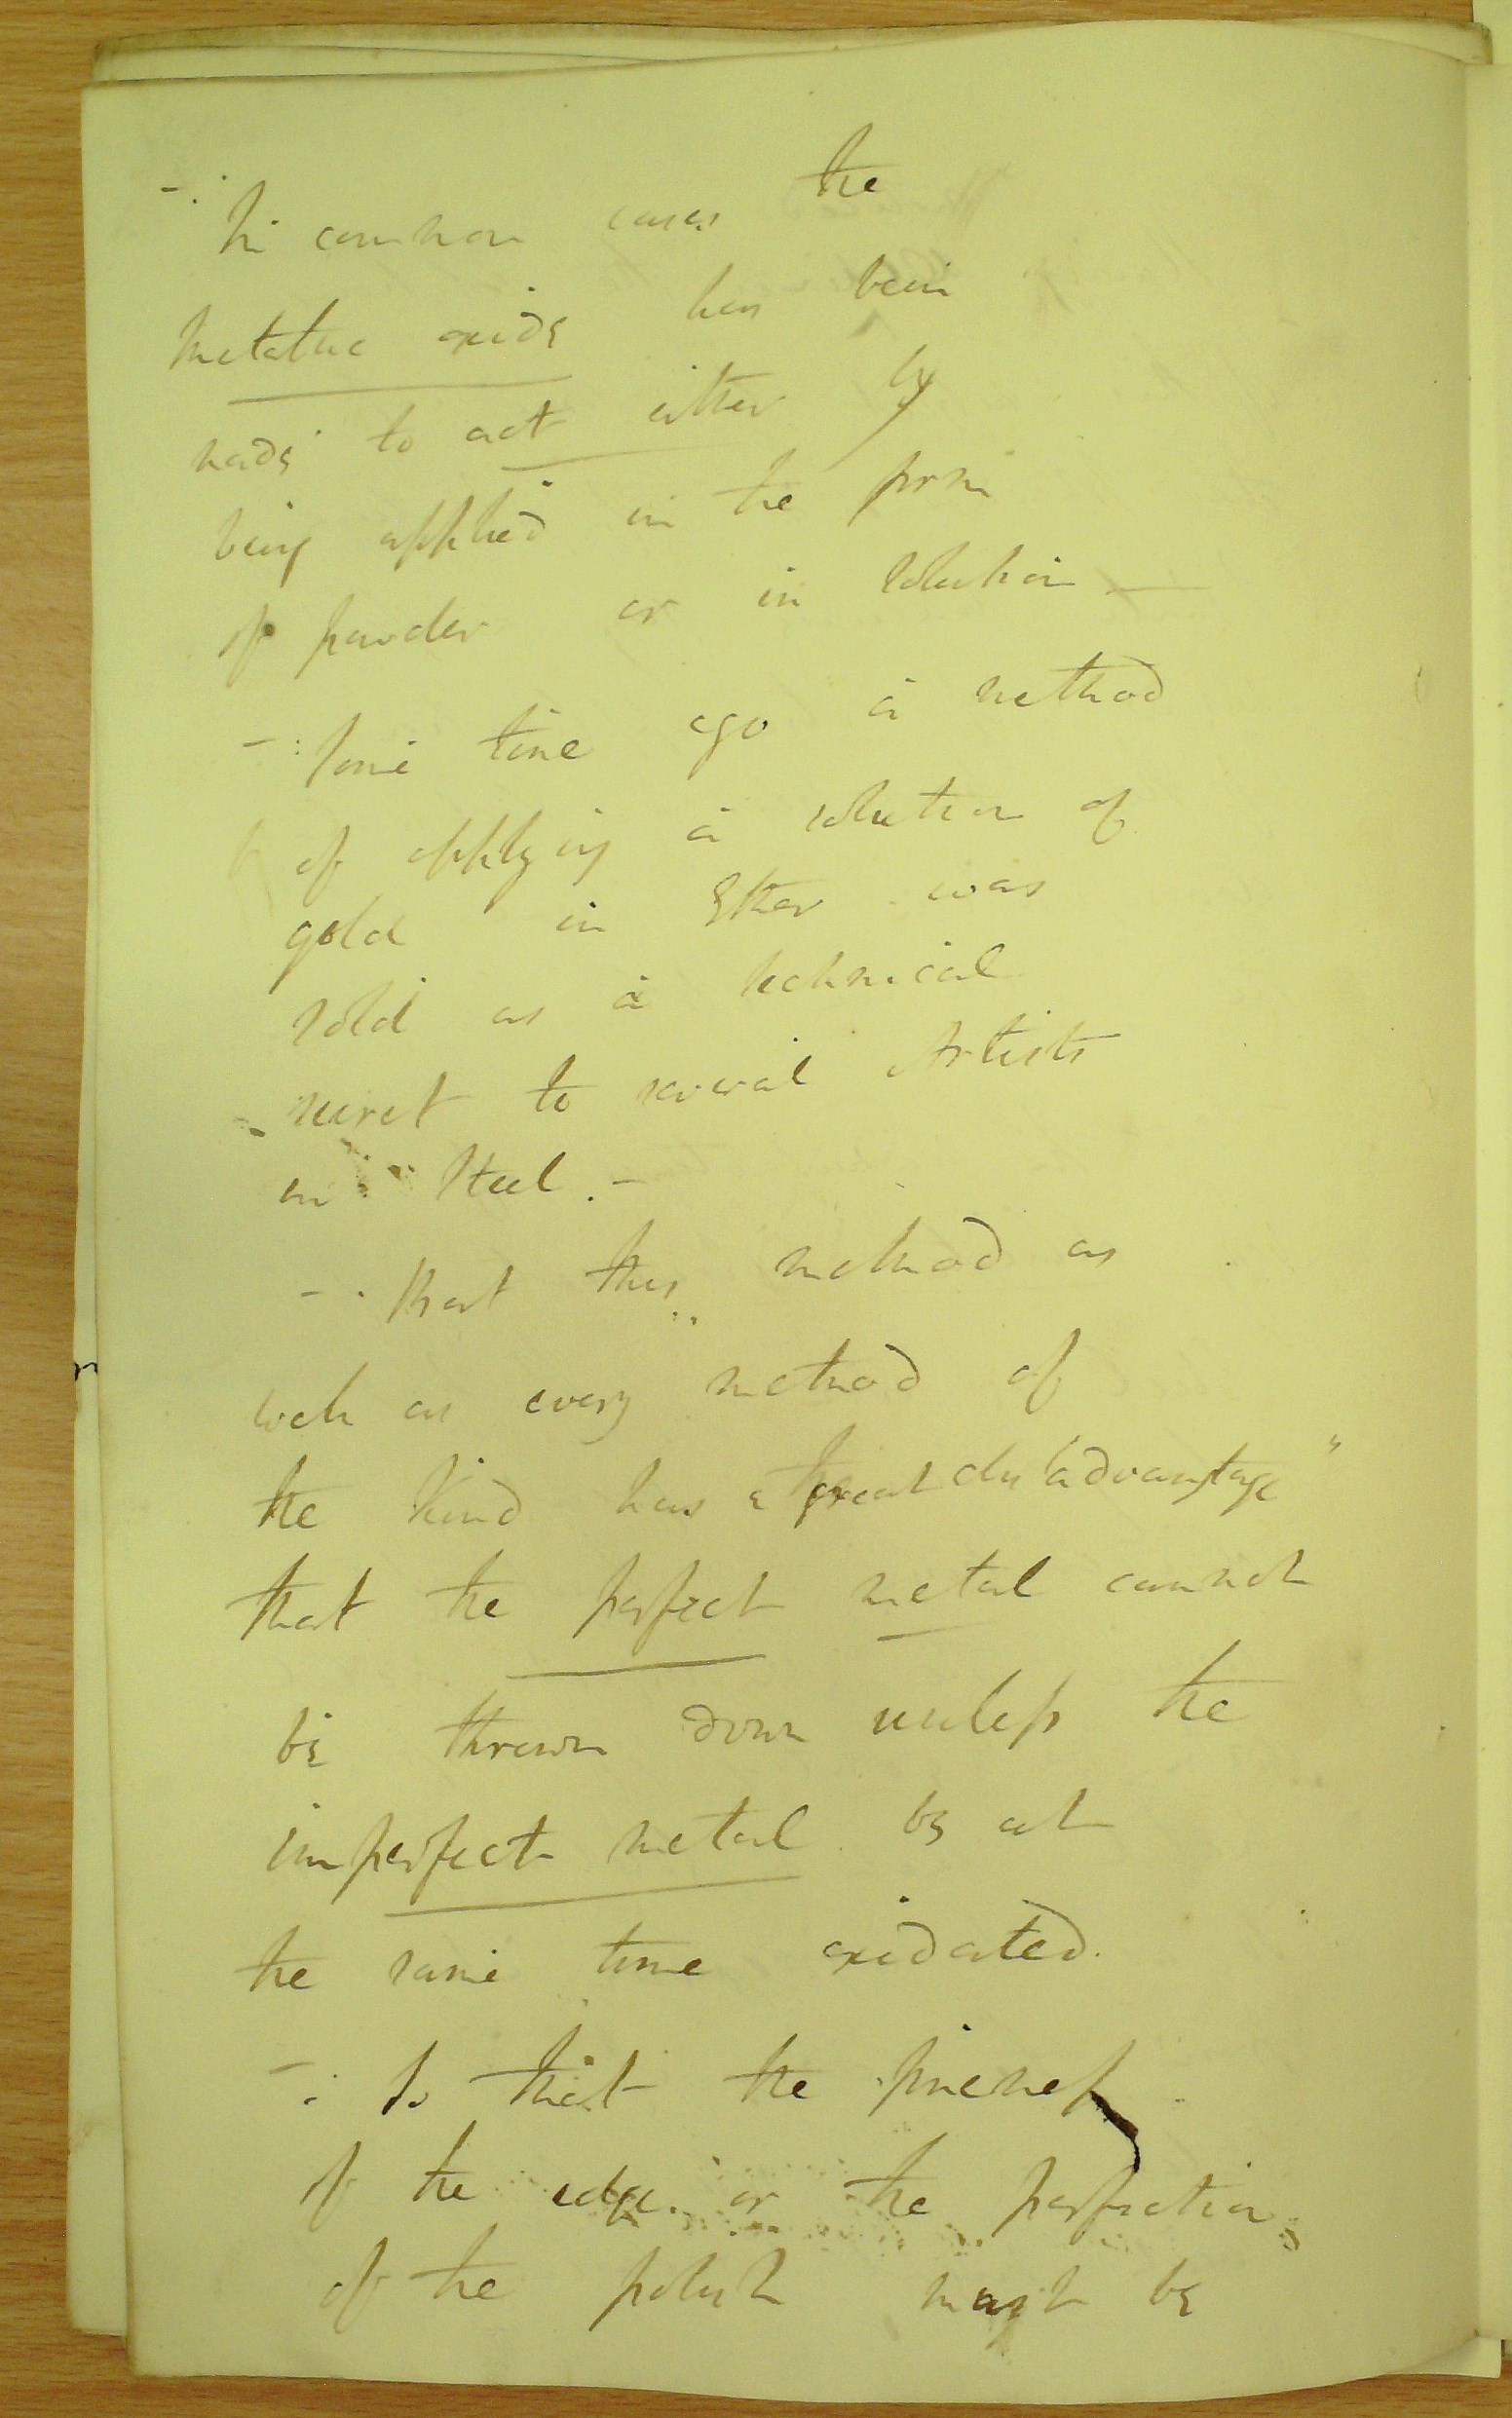 - : In common cases the
metallic oxide has been
made to act either by
being applied in the form
of powder or in solution —
- : Some time ago a method
of applying a solution of
gold in Ether was
sold as a technical
secret to several Artists
in Steel. -
- . But this method as
well as every method of
the kind has a great disadvantage "
that the perfect metal cannot
be thrown down unless the
imperfect metal be at
the same time oxidated.
- : So that the fineness
of the edge or the perfection
of the polish must be